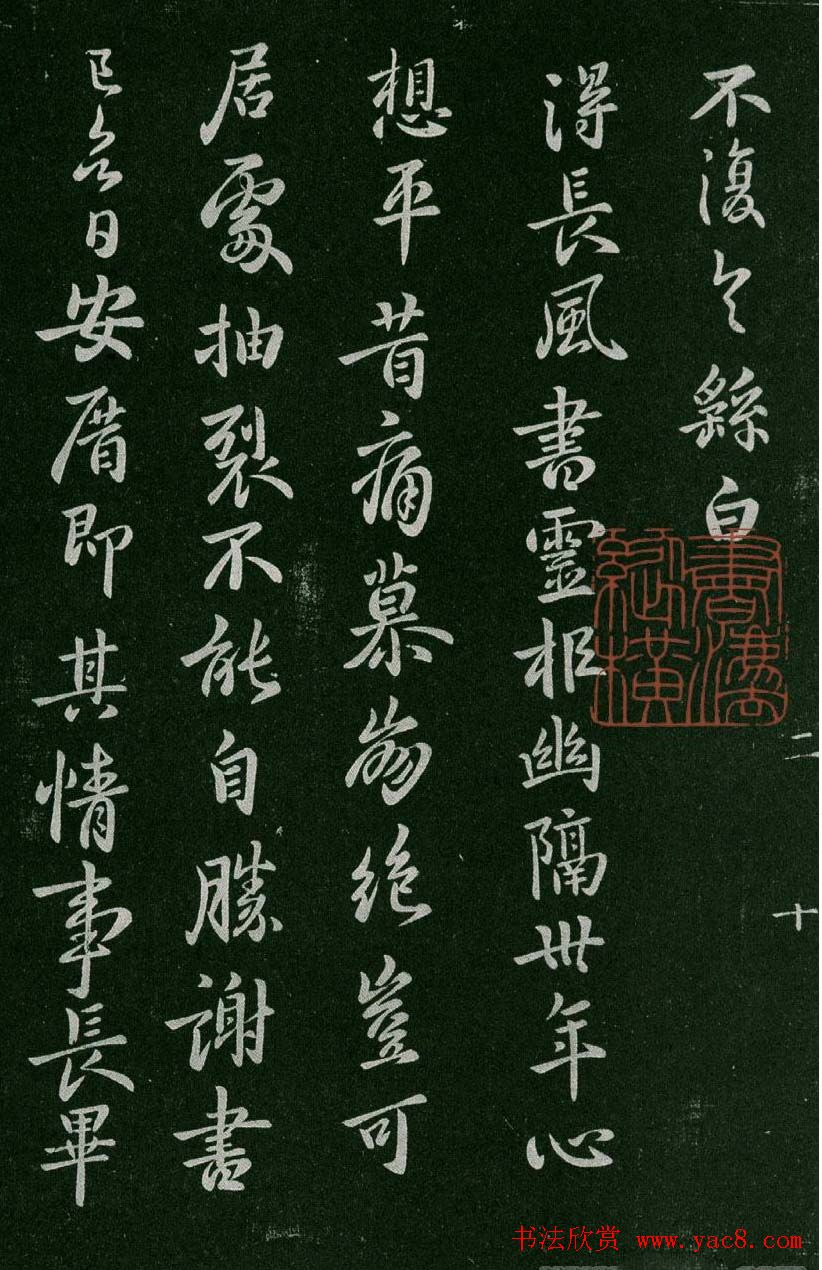 不復々繇白
得長風書靈柩幽隔卅年心
想平昔痛慕崩绝豈可
居處抽裂不能自勝謝書
已含日安厝即其情事長畢
二十
書法欣赏 www.yac8.com